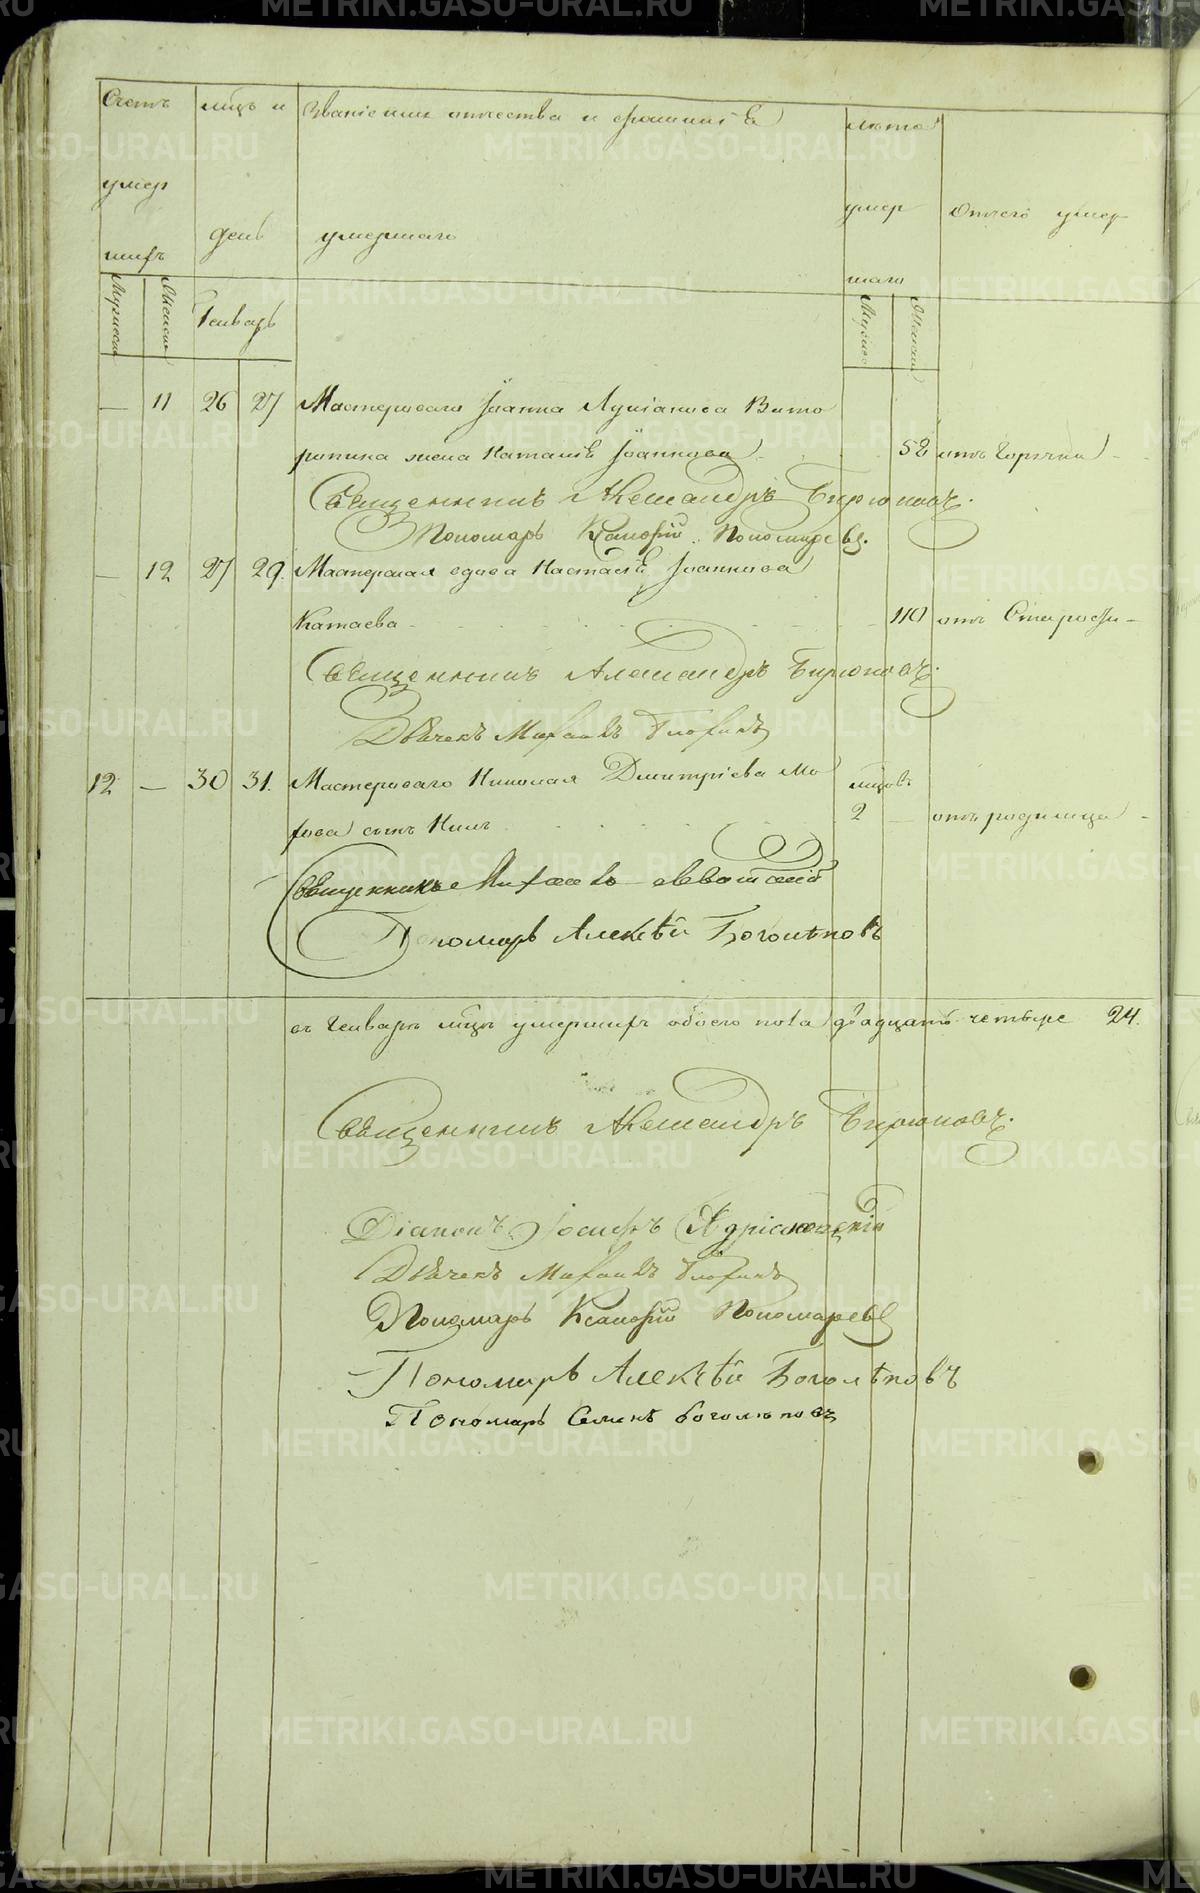 Счетъ
умер
шихъ
мцъ и
день
Званіе имя отчества и фамиліѣ
умершаго
лѣта
умер
шаго
Отчего умер
Мужеска
Женска
Генварь
Мужеска
Женска
— 11 26 27 Мастероваго Іоанна Лукіанова Вито
ропина жена Наталіѣ Іоаннова 52 отъ Горячки
Священникъ Александръ Бирюковъ.
Пономарь Ксанофій Пономаревъ.
— 12 27 29. Мастерская вдова Настасіѣ Іоаннова
Катаева 110 отъ Старости
Священникъ Александръ Бирюковъ.
Дьячекъ Михаилъ
12 — 30 31. Мастероваго Николая Димитріева Мо
хова сынъ Нилъ
мцовъ
2 — отъ родимца
Священникъ Михаилъ
Пономарь Алексѣй Боголѣповъ
въ Генварѣ мцѣ умершихъ обоего пола двадцать четыре 24.
Священникъ Александръ Бирюковъ.
Діаконъ Іосифъ
Дьячекъ Михаилъ
Пономарь Ксанофій Пономаревъ
Пономарь Алексѣй Боголѣповъ
Пономарь Семенъ Боголѣповъ
METRIKI.GASO-URAL.RU